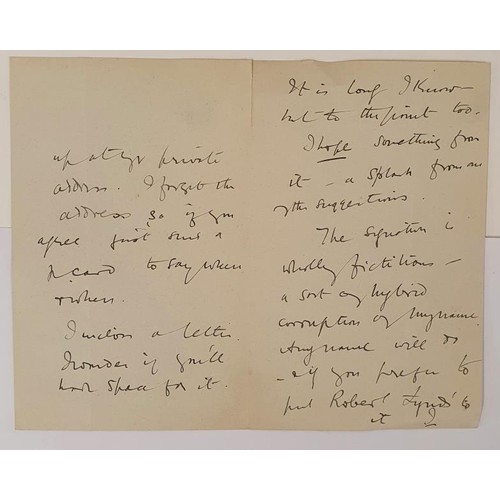 up at yr private
address. I forget the
address, so if you
agree just send a
p.card to say when
& when.
I enclose a letter.
I wonder if you'll
have space for it.
It is long I know –
but to the point too.
I hope something from
it – a splash from one
of the suggestions.
The signature is
wholly fictitious –
a sort of hybrid
corruption of my name.
Any name will do
– if you prefer to
put Robert Lynd's to
it